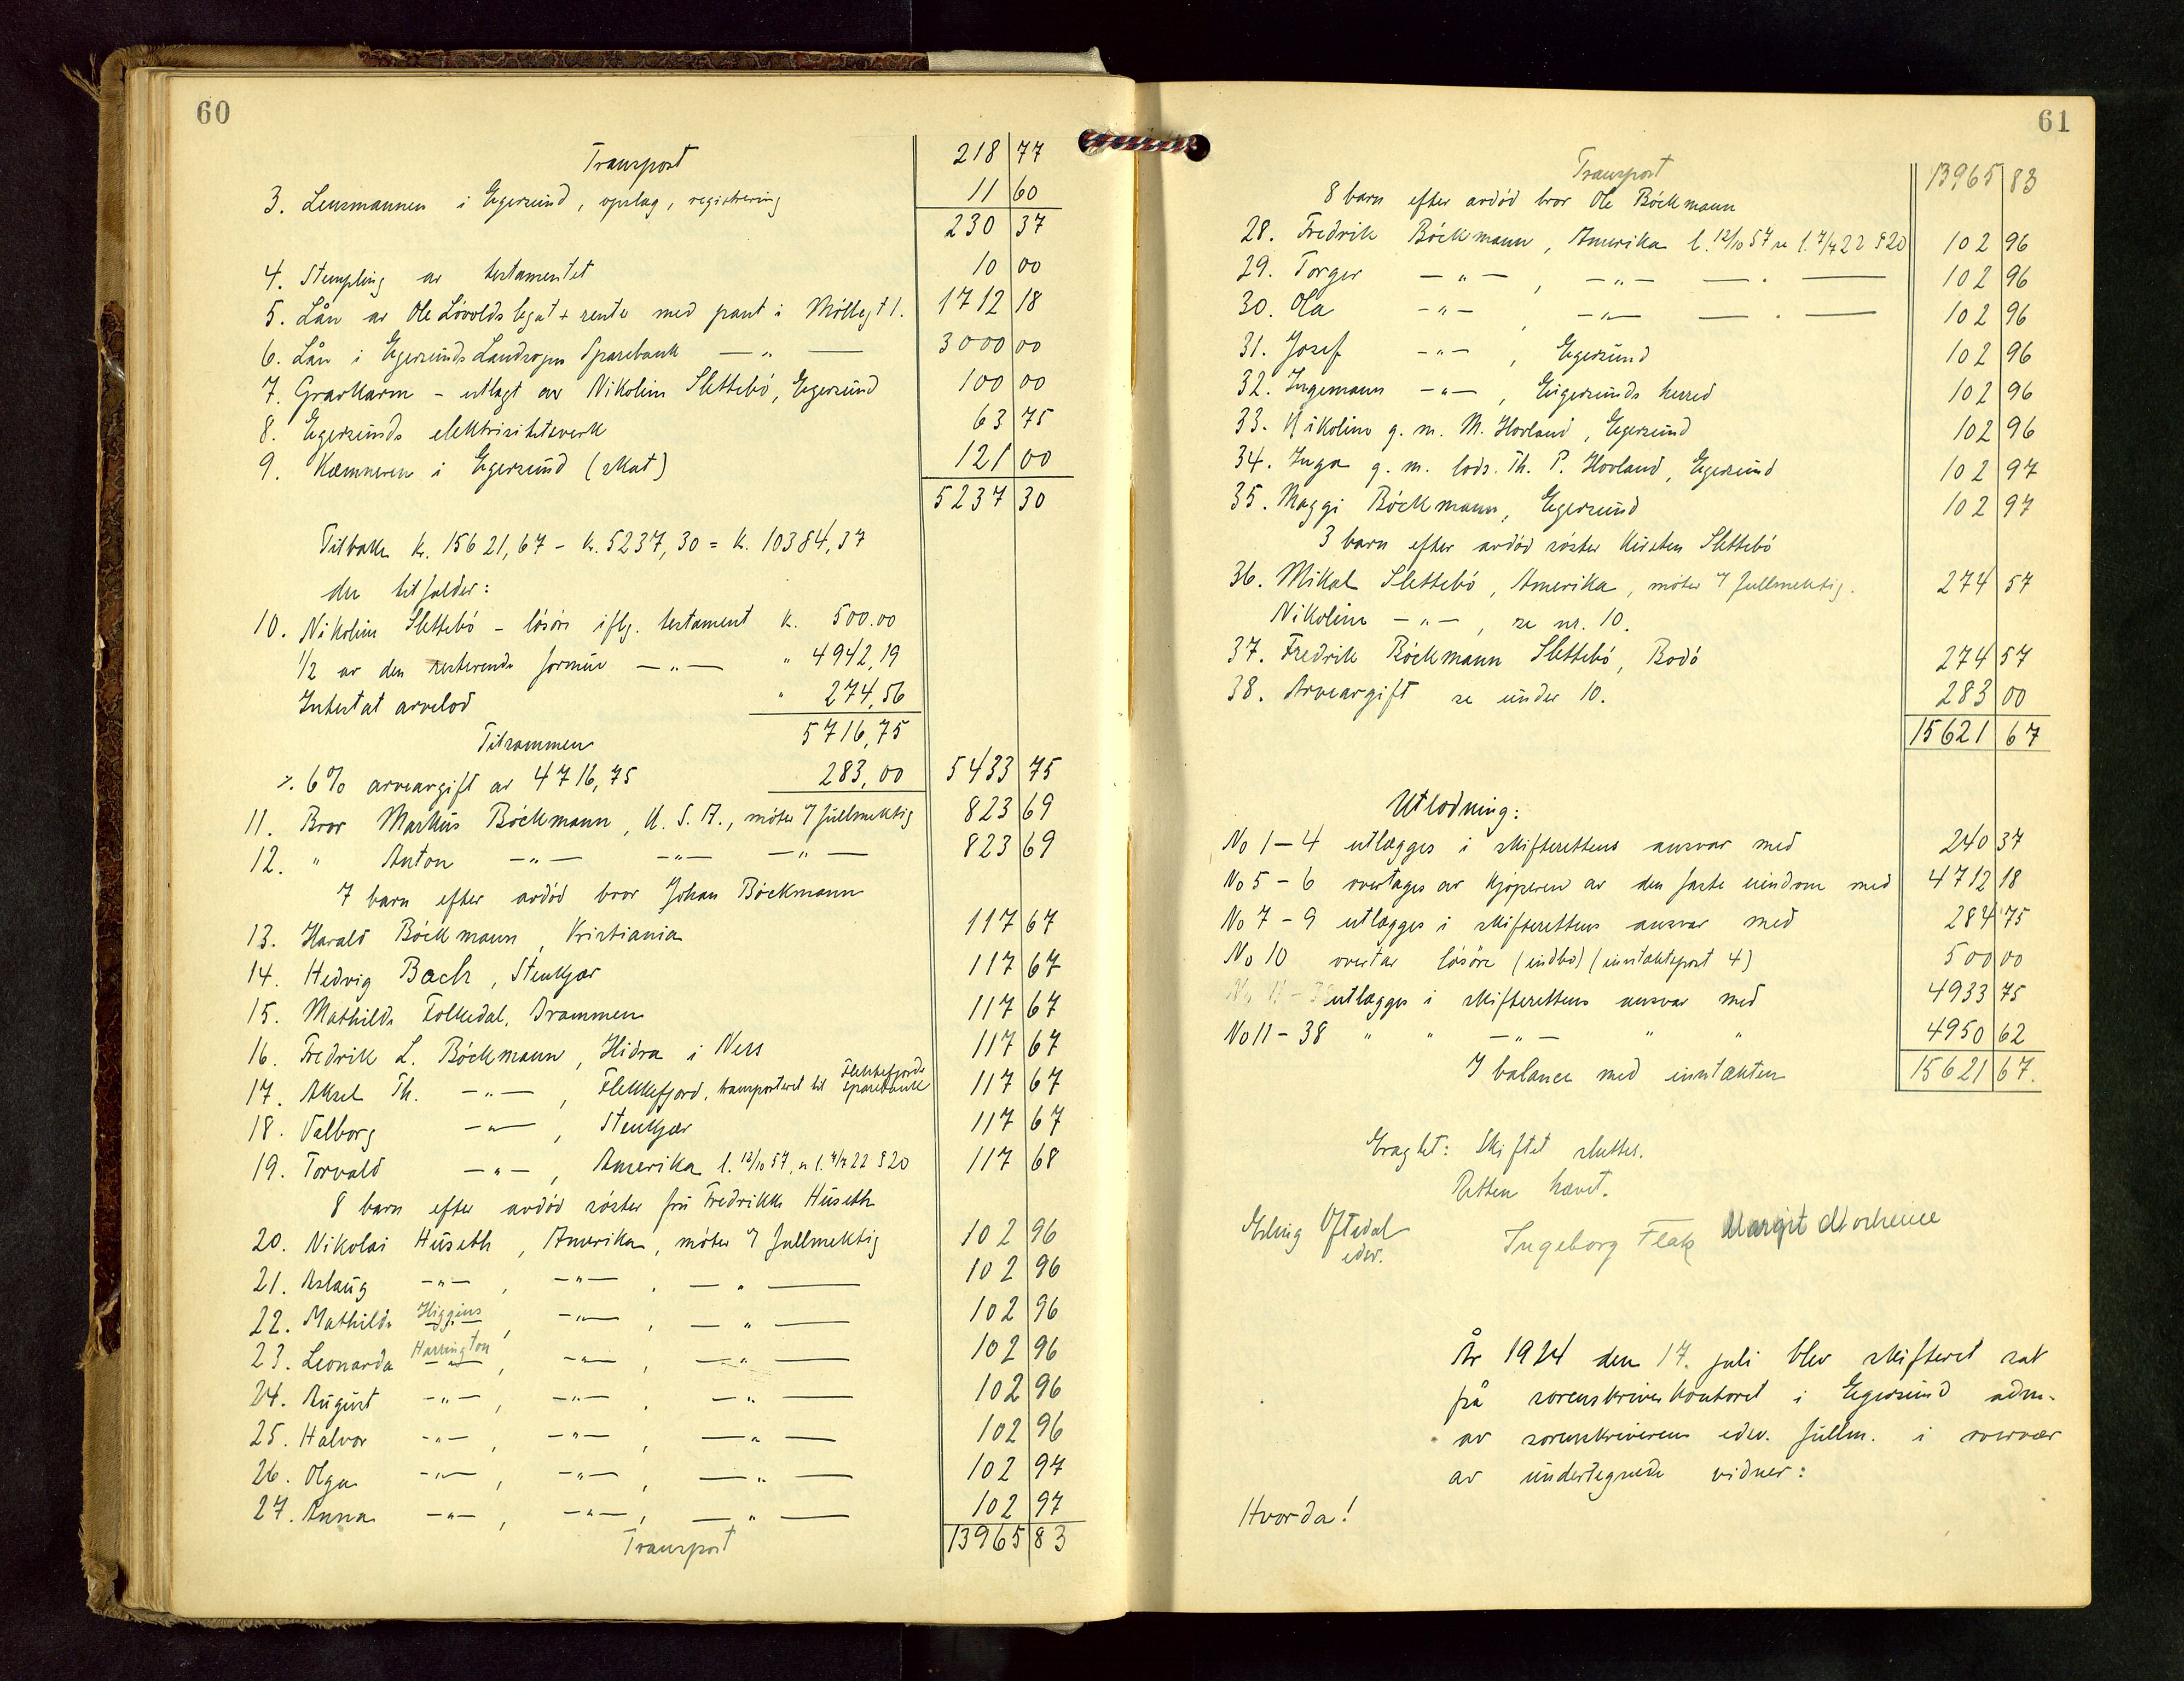 60
Transport 218 77
3. Lensmannen i Egersund, opslag, registrering 11 60
230 37
4. Stempling av testamentet 10 00
5. Lån av Ole Lövolds legat + rente med pant i Möllegt 1. 1712 18
6. Lån i Egersunds Landsogns Sparebank — " — 3000 00
7. Gravkarm - utlagt av Nikoline Slettebö, Egersund 100 00
8. Egersunds elektrisitetsverk 63 75
9. Kæmneren i Egersund (skat) 121 00
5237 30
Tilbake kr. 15621,67 - kr. 5237,30 = kr. 10384,37
der tilfalder:
10. Nikoline Slettebö - lösöre iflg. testament kr. 500.00
1/2 av den resterende formue — " — " 4942,19
Intestat arvelod " 274,56
Tilsammen 5716,75
÷ 6% arveavgift av 4716,75 283,00 5433 75
11. Bror Markus Böckmann, U. S. A., möter v/ fullmektig 823 69
12. " Anton — " — — " — — " — 823 69
7 barn efter avdöd bror Johan Böckmann
13. Harald Böckmann, Kristiania 117 67
14. Hedvig Bach, Stenkjær 117 67
15. Mathilde Folkedal, Drammen 117 67
16. Fredrik L. Böckmann, Hidra i Ness 117 67
17. Aksel Th. — " —, Flekkefjord, transporteret til Flekkefjords Sparebank 117 67
18. Valborg — " —, Stenkjær 117 67
19. Torvald — " —, Amerika l. 12/10 57, se l. 7/4 22 § 20 117 68
8 barn efter avdöd söster fru Fredrikke Huseth
20. Nikolai Huseth, Amerika, möter v/ fullmektig 102 96
21. Aslaug — " —, — " —, — " — 102 96
22. Mathilde Higgins — " —, — " —, — " — 102 96
23. Leonarda Harrington — " —, — " —, — " — 102 96
24. August — " —, — " —, — " — 102 96
25. Halvor — " —, — " —, — " — 102 96
26. Olga — " —, — " —, — " — 102 97
27. Anna — " —, — " —, — " — 102 97
Transport 13965 83
61
Transport 13965 83
8 barn efter avdöd bror Ole Böckmann
28. Fredrik Böckmann, Amerika l. 12/10 57 se l. 7/4 22 § 20 102 96
29. Torger — " —, — " — — " — 102 96
30. Ola — " —, — " — — " — 102 96
31. Josef — " —, Egersund 102 96
32. Ingemann — " —, Eigersunds herred 102 96
33. Nikoline g. m. M. Hovland, Egersund 102 96
34. Inga g. m. lods. Th. P. Hovland, Egersund 102 97
35. Maggi Böckmann, Egersund 102 97
3 barn efter avdöd söster Kirsten Slettebö
36. Mikal Slettebö, Amerika, möter v/ fullmektig. 274 57
Nikoline — " —, se nr. 10.
37. Fredrik Böckmann Slettebö, Bodö 274 57
38. Arveavgift se under 10. 283 00
15621 67
Utlodning:
No 1 - 4 utlægges i skifterettens ansvar med 240 37
No 5 - 6 overtages av kjöperen av den faste eiendom med 4712 18
No 7 - 9 utlægges i skifterettens ansvar med 284 75
No 10 overtar lösöre (indbo) (inntektspost 4) 500 00
utlægges i skifterettens ansvar med 4933 75
No 11 - 38 " " — " — " " 4950 62
I balance med inntekten 15621 67.
Eragtet: Skiftet sluttes.
Retten hævet.
Erling Oftedal
edsv.
Ingeborg Flak Margit
År 1924 den 17. juli blev skifteret sat
på sorenskriverkontoret i Egersund adm.
av sorenskriverens edsv. fullm. i overvær
av undertegnede vidner:
Hvorda!